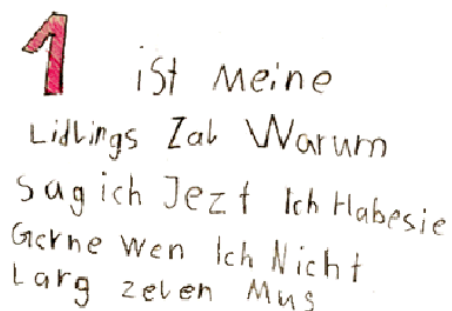 1 ist Meine
Lidlings Zal Warum
sag ich Jezt Ich Habesie
Gerne wen Ich Nicht
Larg zelen Mus